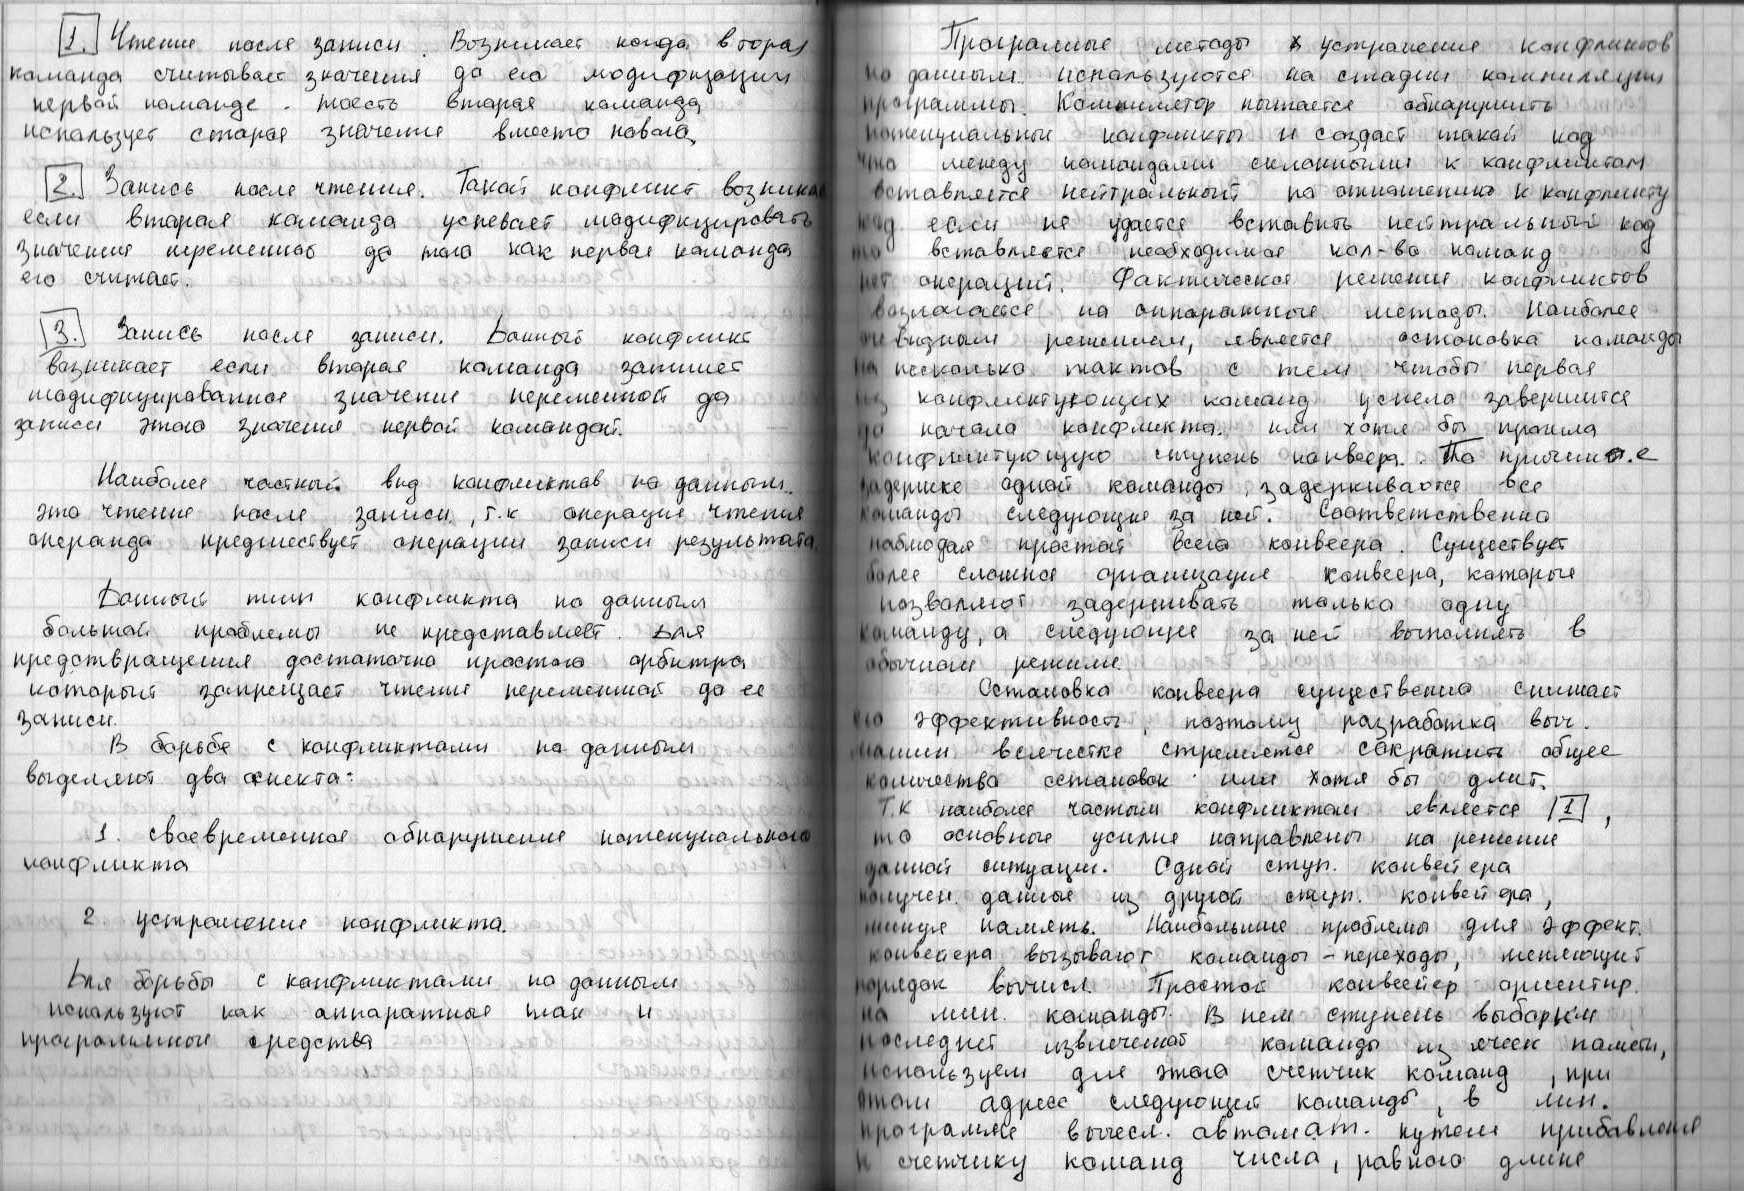 1. Чтение после записи. Возникает когда вторая
команда считывает значения до его модификации
первой команде. тоесть вторая команда
использует старая значение вместо новова
2. Запись после чтения. Такой конфликт возника
если вторая команда успевает модифицировать
значения переменной до того как первая команда
его считает.
3. Запись после записи. Данный конфликт
возникает если вторая команда запишет
модифицированное значение переменной до
записи этого значения первой командой.
Наиболее частный вид конфликтов по данным.
это чтение после записи, т.к операция чтения
операнда предшествует операции записи результата.
Данный тип конфликта по данным
большой проблемы не представляет. Для
предствращения достаточно простого арбитра
который запрещает чтение переменной до ее
записи.
В борьбе с конфликтами по данным
выделяют два аспекта:
1. своевременное обнаружение потенциального
конфликта
2 устранение конфликта.
Для борьбы с конфликтами по данным
используют как аппаратные так и
программные средства
Програмные методы устранения конфликтов
по данным. используются на стадии компиляции
программы. Компилятор пытается обнаружить
потенциальный конфликты и создаст такой код
что между командами склонными к конфликтам
вставляется нейтральный по отношению к конфликту
код. если не удается вставить нейтральный код
то вставляется необходимое кол-во команд
нет операций. Фактическое решение конфликтов
возлагается на аппаратные методы. Наиболее
очевидным решением, является остановка команды
на несколько тактов с тем чтобы первая
из конфликтующих команд успела завершится
до начала конфликта. или хотя бы прошла
конфликтующую ступень конвеера. По причине
задержке одной команды, задерживаются все
команды следующие за ней. Соответственно
наблюдая простой всего конвеера. Существует
более сложная организация конвеера, которые
позволяют задерживать только одну
команду, а следующее за ней выполнять в
обычном режиме
Остановка конвеера существенно снижает
его эффективность, поэтому разработка выч.
машин всячестке стремятся сократить общее
количества остановок или хотя бы длит.
Т.К наиболее частым конфликтом является 1,
то основные усилия направлены на решение
данной ситуации. Одной ступ. конвейера
получен. данные из другой ступ. конвейера,
минуя память. Наибольшие проблемы для эффект.
конвейера вызывают команды - переходы, меняющий
порядок вычисл. Простой конвейер ориентир.
на лин. команды. В нем ступень выборки
последней извлеченной команды из ячеек памяти,
используем для этого счетчик команд, при
этом адрес следующей команды, в лин.
программе вычесл. автомат. путем прибавления
к счетчику команд числа, равного длине